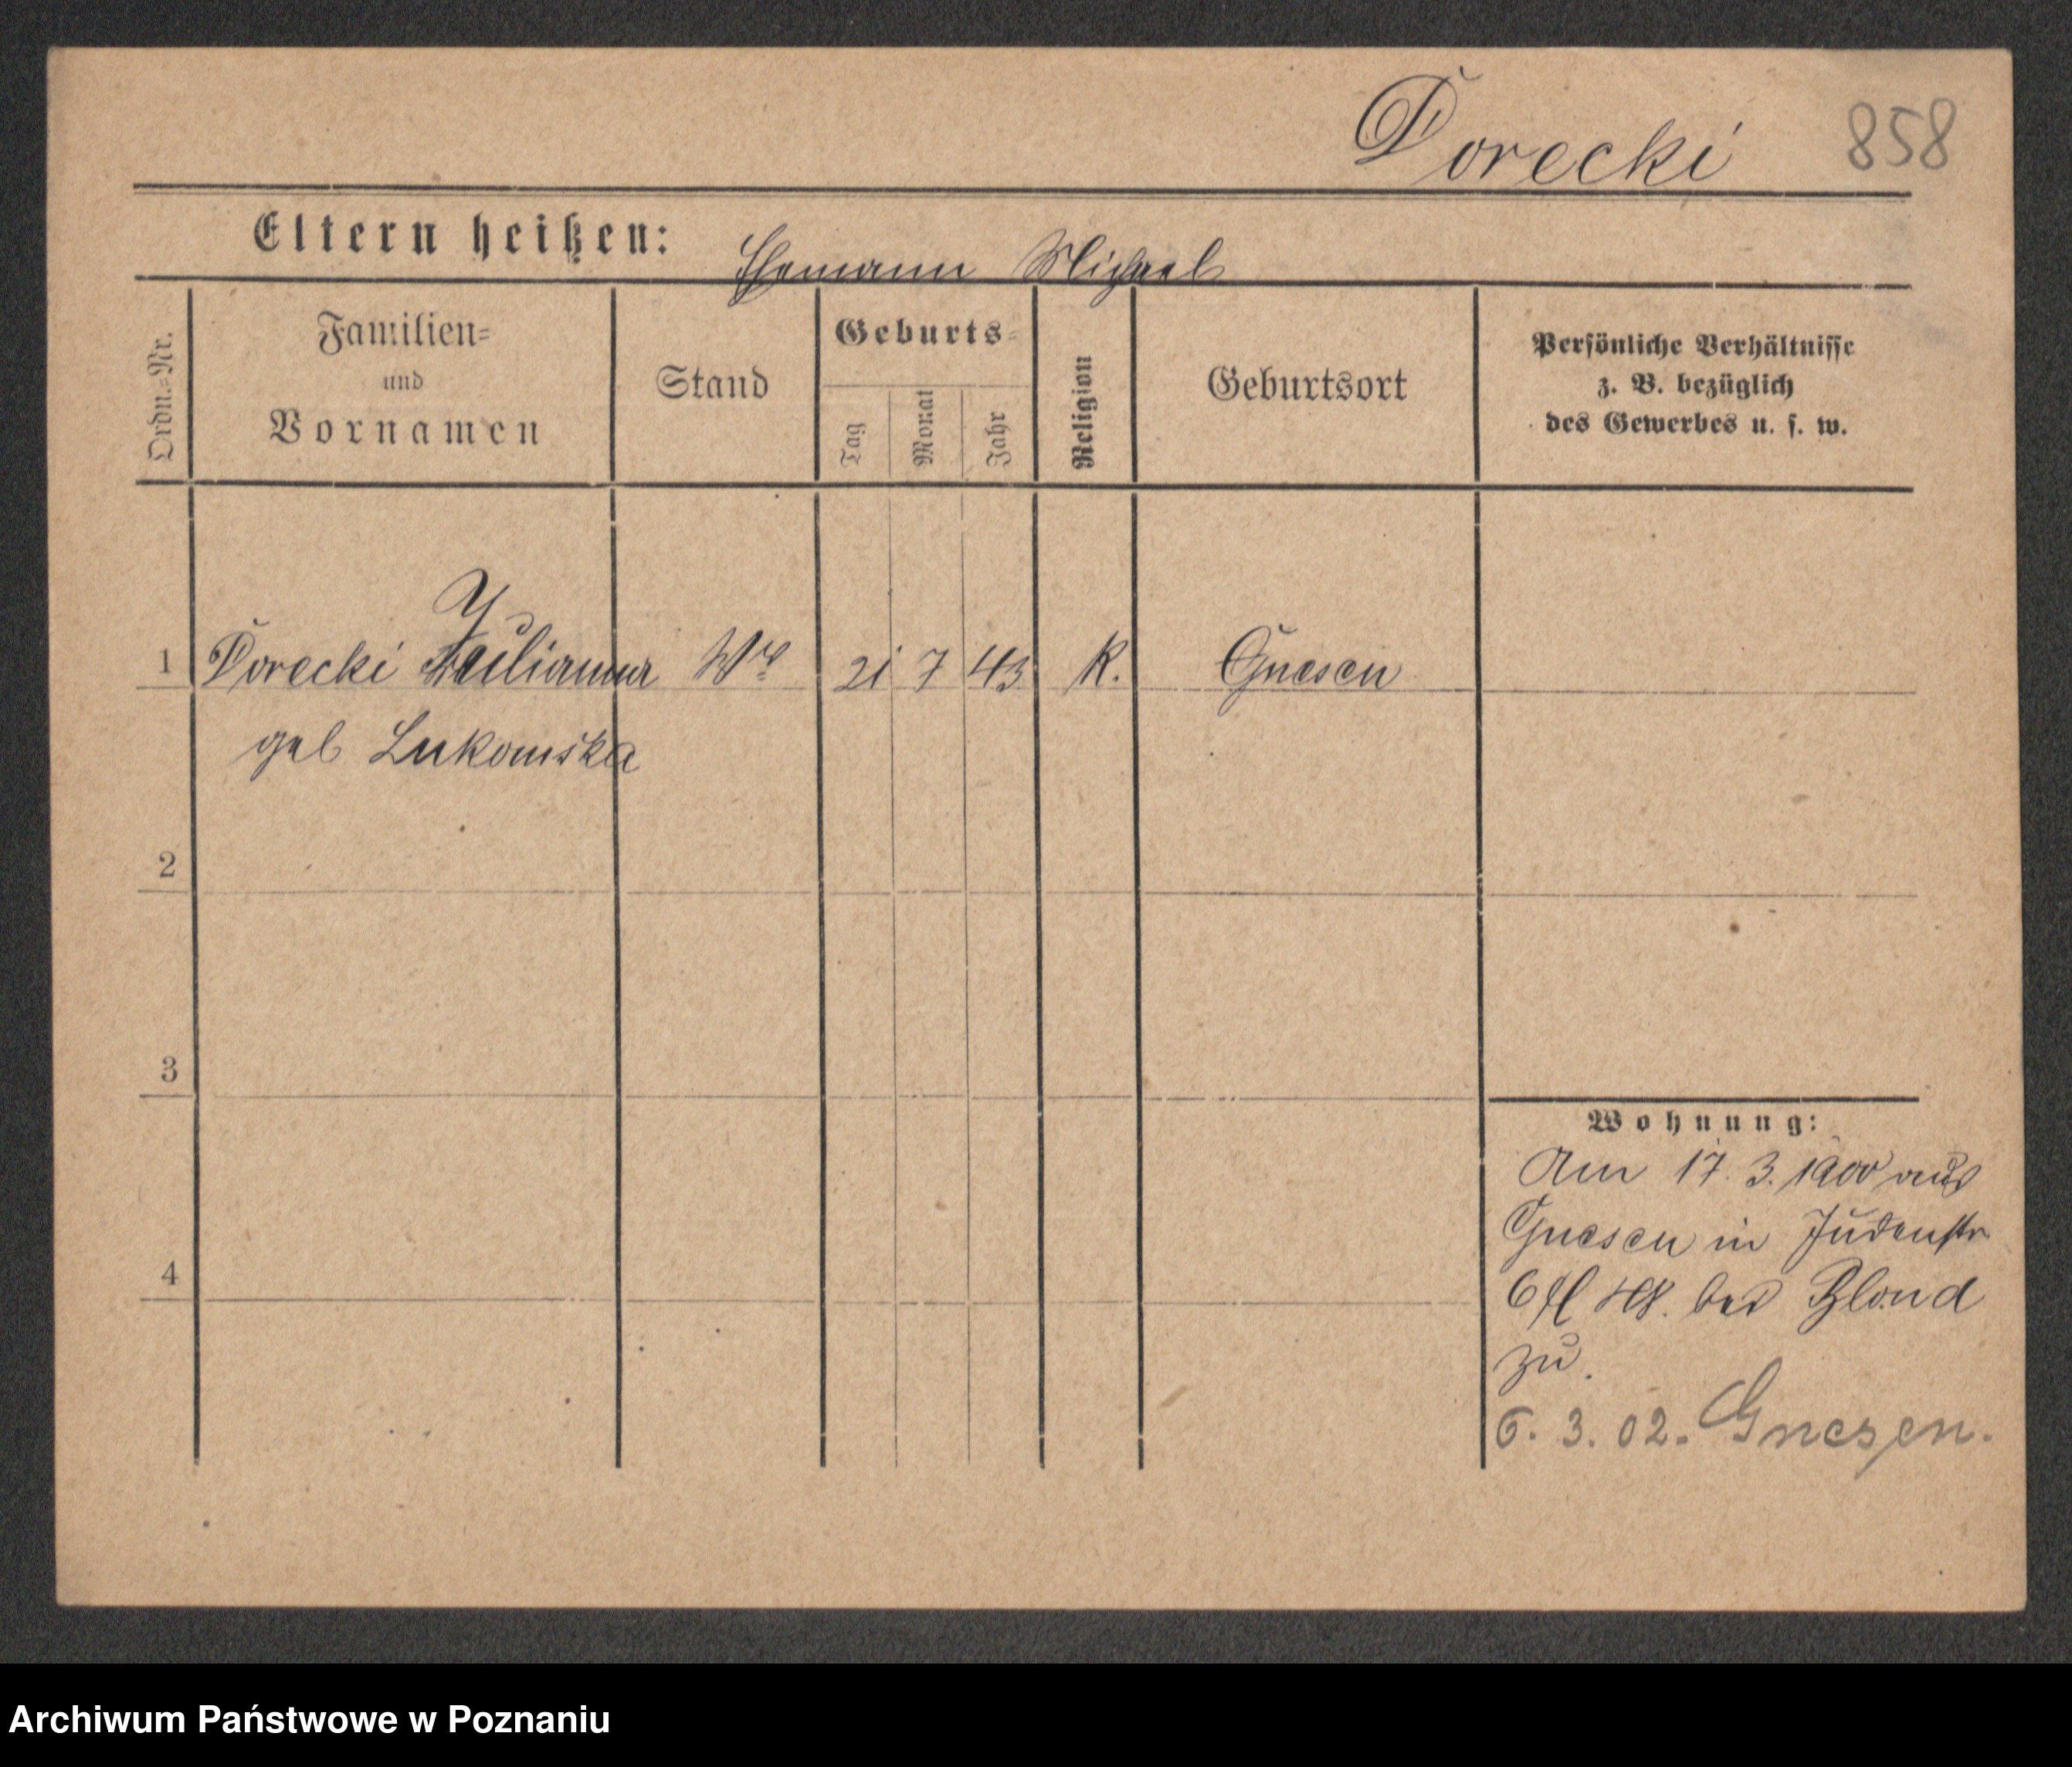 Dorecki 858
Eltern heißen: Ehemann Michael
Ordn.=Nr.
Familien=
und
Vornamen
Stand
Geburts=
Tag
Monat
Jahr
Religion
Geburtsort
Persönliche Verhältnisse
z. B. bezüglich
des Gewerbes u. s. w.
1 Dorecki Julianna Wwe 21 7 43 K. Gnesen
geb Lukomska
2
3
4
Wohnung:
Am 17. 3. 1900 aus
Gnesen in Judenstr
6 bei Blond
zu.
6. 3. 02. Gnesen.
Archiwum Państwowe w Poznaniu